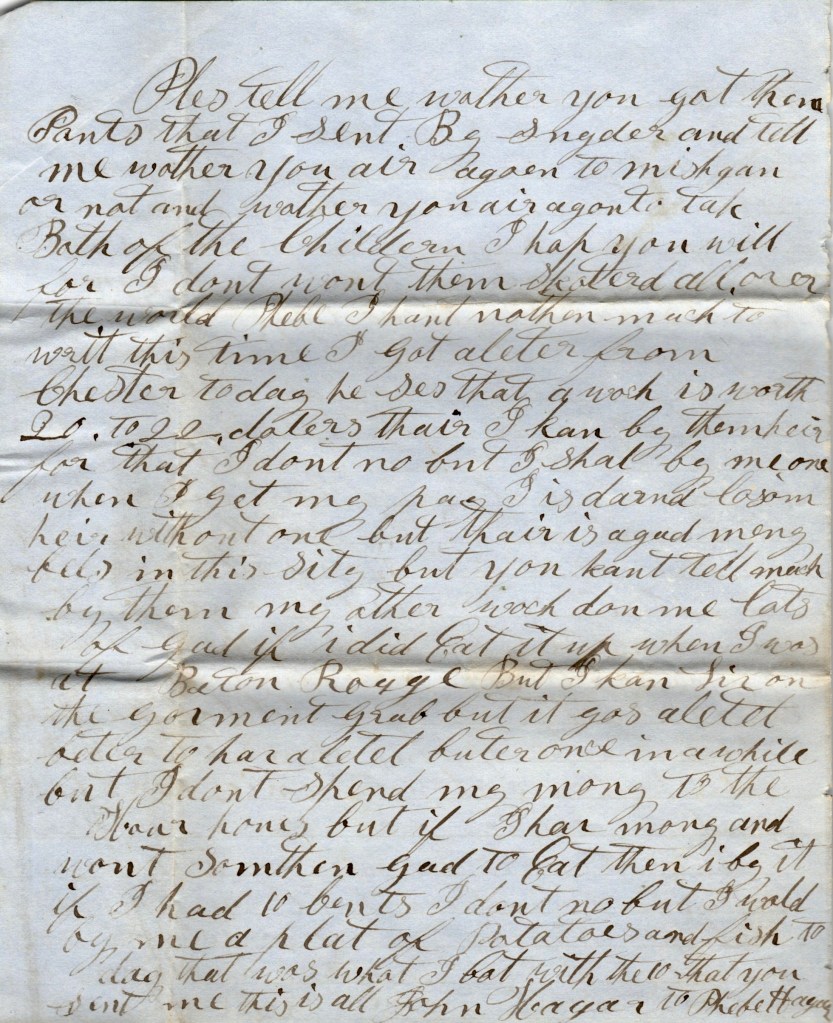 Ples tell me wother you got them
Pants that I sent By Snyder and tell
me wother you air agoen to mishgan
or not and wother you air agon to tak
Both of the Childern I hap you will
for I dont wont them skatterd all over
the world Phebe I hant nothen much to
writ this time I got a leter from
Chester to day he ses that a woch is worth
20. to 22. dolers thair I kan by them heir
for that I dont no but I shal by me one
when I get my pay I is darnd losom
heir without one but thair is a gud meny
bels in this Sity but you kant tell much
by them my other woch don me lots
of gud if i did Eat it up when I was
at Baton Rouge But I kan liv on
the gorment grub but it gos a letel
beter to hav a letel buter once in a while
but I dont spend my mony to the
hour hous but if I hav mony and
wont somthen gud to Eat then i by it
if I had 10 Cents I dont no but I wold
by me a plat of Potatoes and fish to
day that was what I bot with the 10 that you
sent me this is all John Hagar to Phebe Hagar